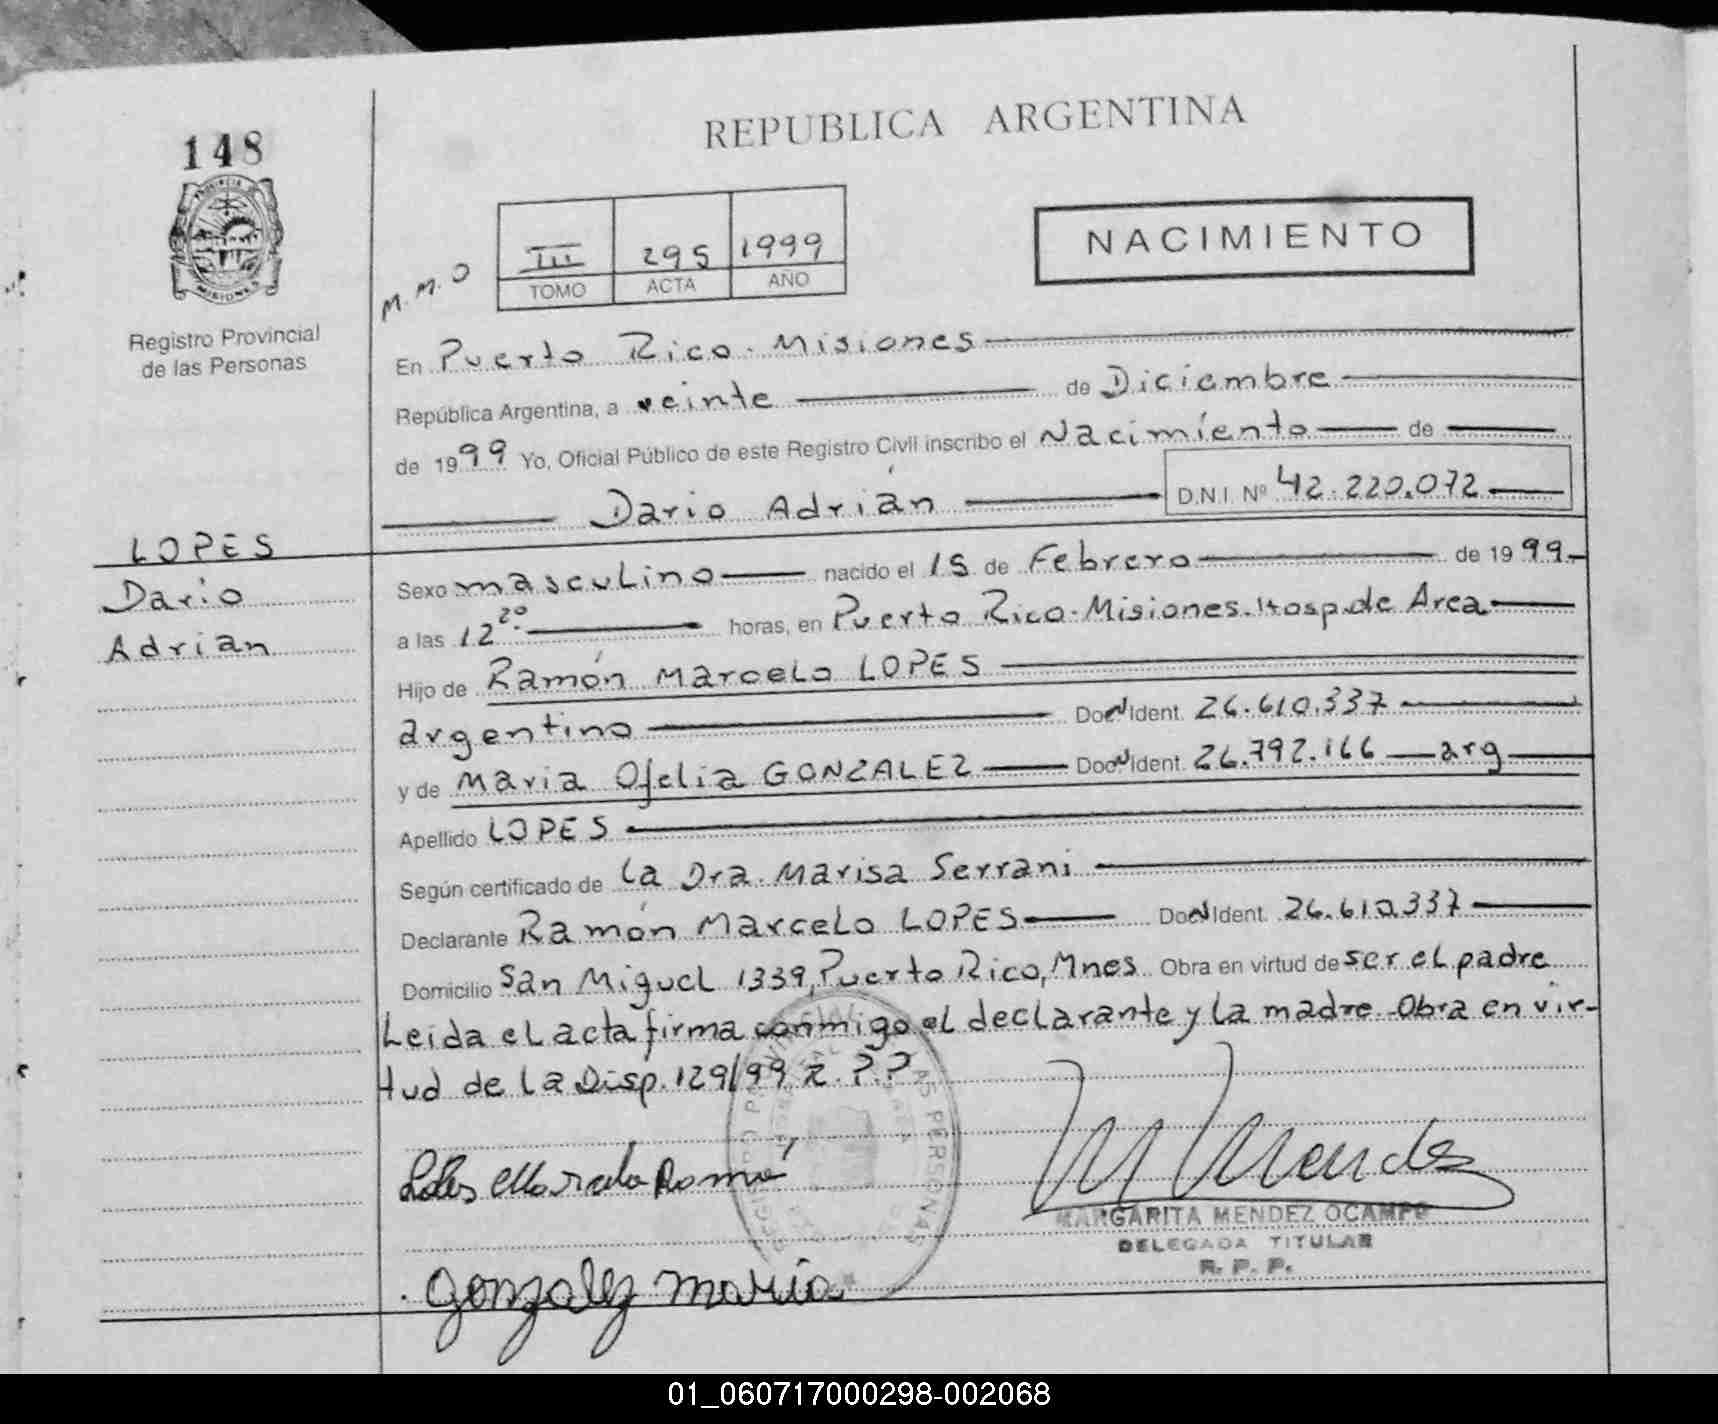 148
REPUBLICA ARGENTINA
NACIMIENTO
III 295 1999
TOMO ACTA AÑO
M.M.O
Registro Provincial
de las Personas
En Puerto Rico. Misiones
República Argentina, a veinte de Diciembre
de 1999 Yo, Oficial Público de este Registro Civil inscribo el Nacimiento de
Dario Adrián D.N.I. Nº 42.220.072
LOPES
Dario
Adrian
Sexo masculino nacido el 15 de Febrero de 1999
a las 12 20. horas, en Puerto Rico. Misiones. Hosp. de Area
Hijo de Ramón Marcelo LOPES
argentino Doc N Ident. 26.610.337
y de Maria Ofelia GONZALEZ Doc N Ident. 26.792.166 arg
Apellido LOPES
Según certificado de la Dra. Marisa Serrani
Declarante Ramón Marcelo LOPES Doc N Ident. 26.610.337
Domicilio San Miguel 1339, Puerto Rico, Mnes. Obra en virtud de ser el padre
Leida el acta firma conmigo el declarante y la madre. Obra en vir-
tud de la Disp. 129/99 R.P.P.
Lopes Marcelo Ramón
M Mendez
MARGARITA MENDEZ OCAMPO
DELEGADA TITULAR
R. P. P.
Gonzalez Maria
01_060717000298-002068